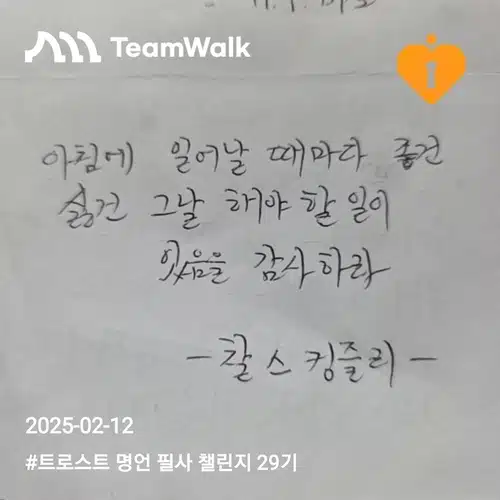 TeamWalk
아침에 일어날 때마다 좋건
싫건 그날 해야 할 일이
있음을 감사하라
- 찰스 킹즐리 -
2025-02-12
#트로스트 명언 필사 챌린지 29기